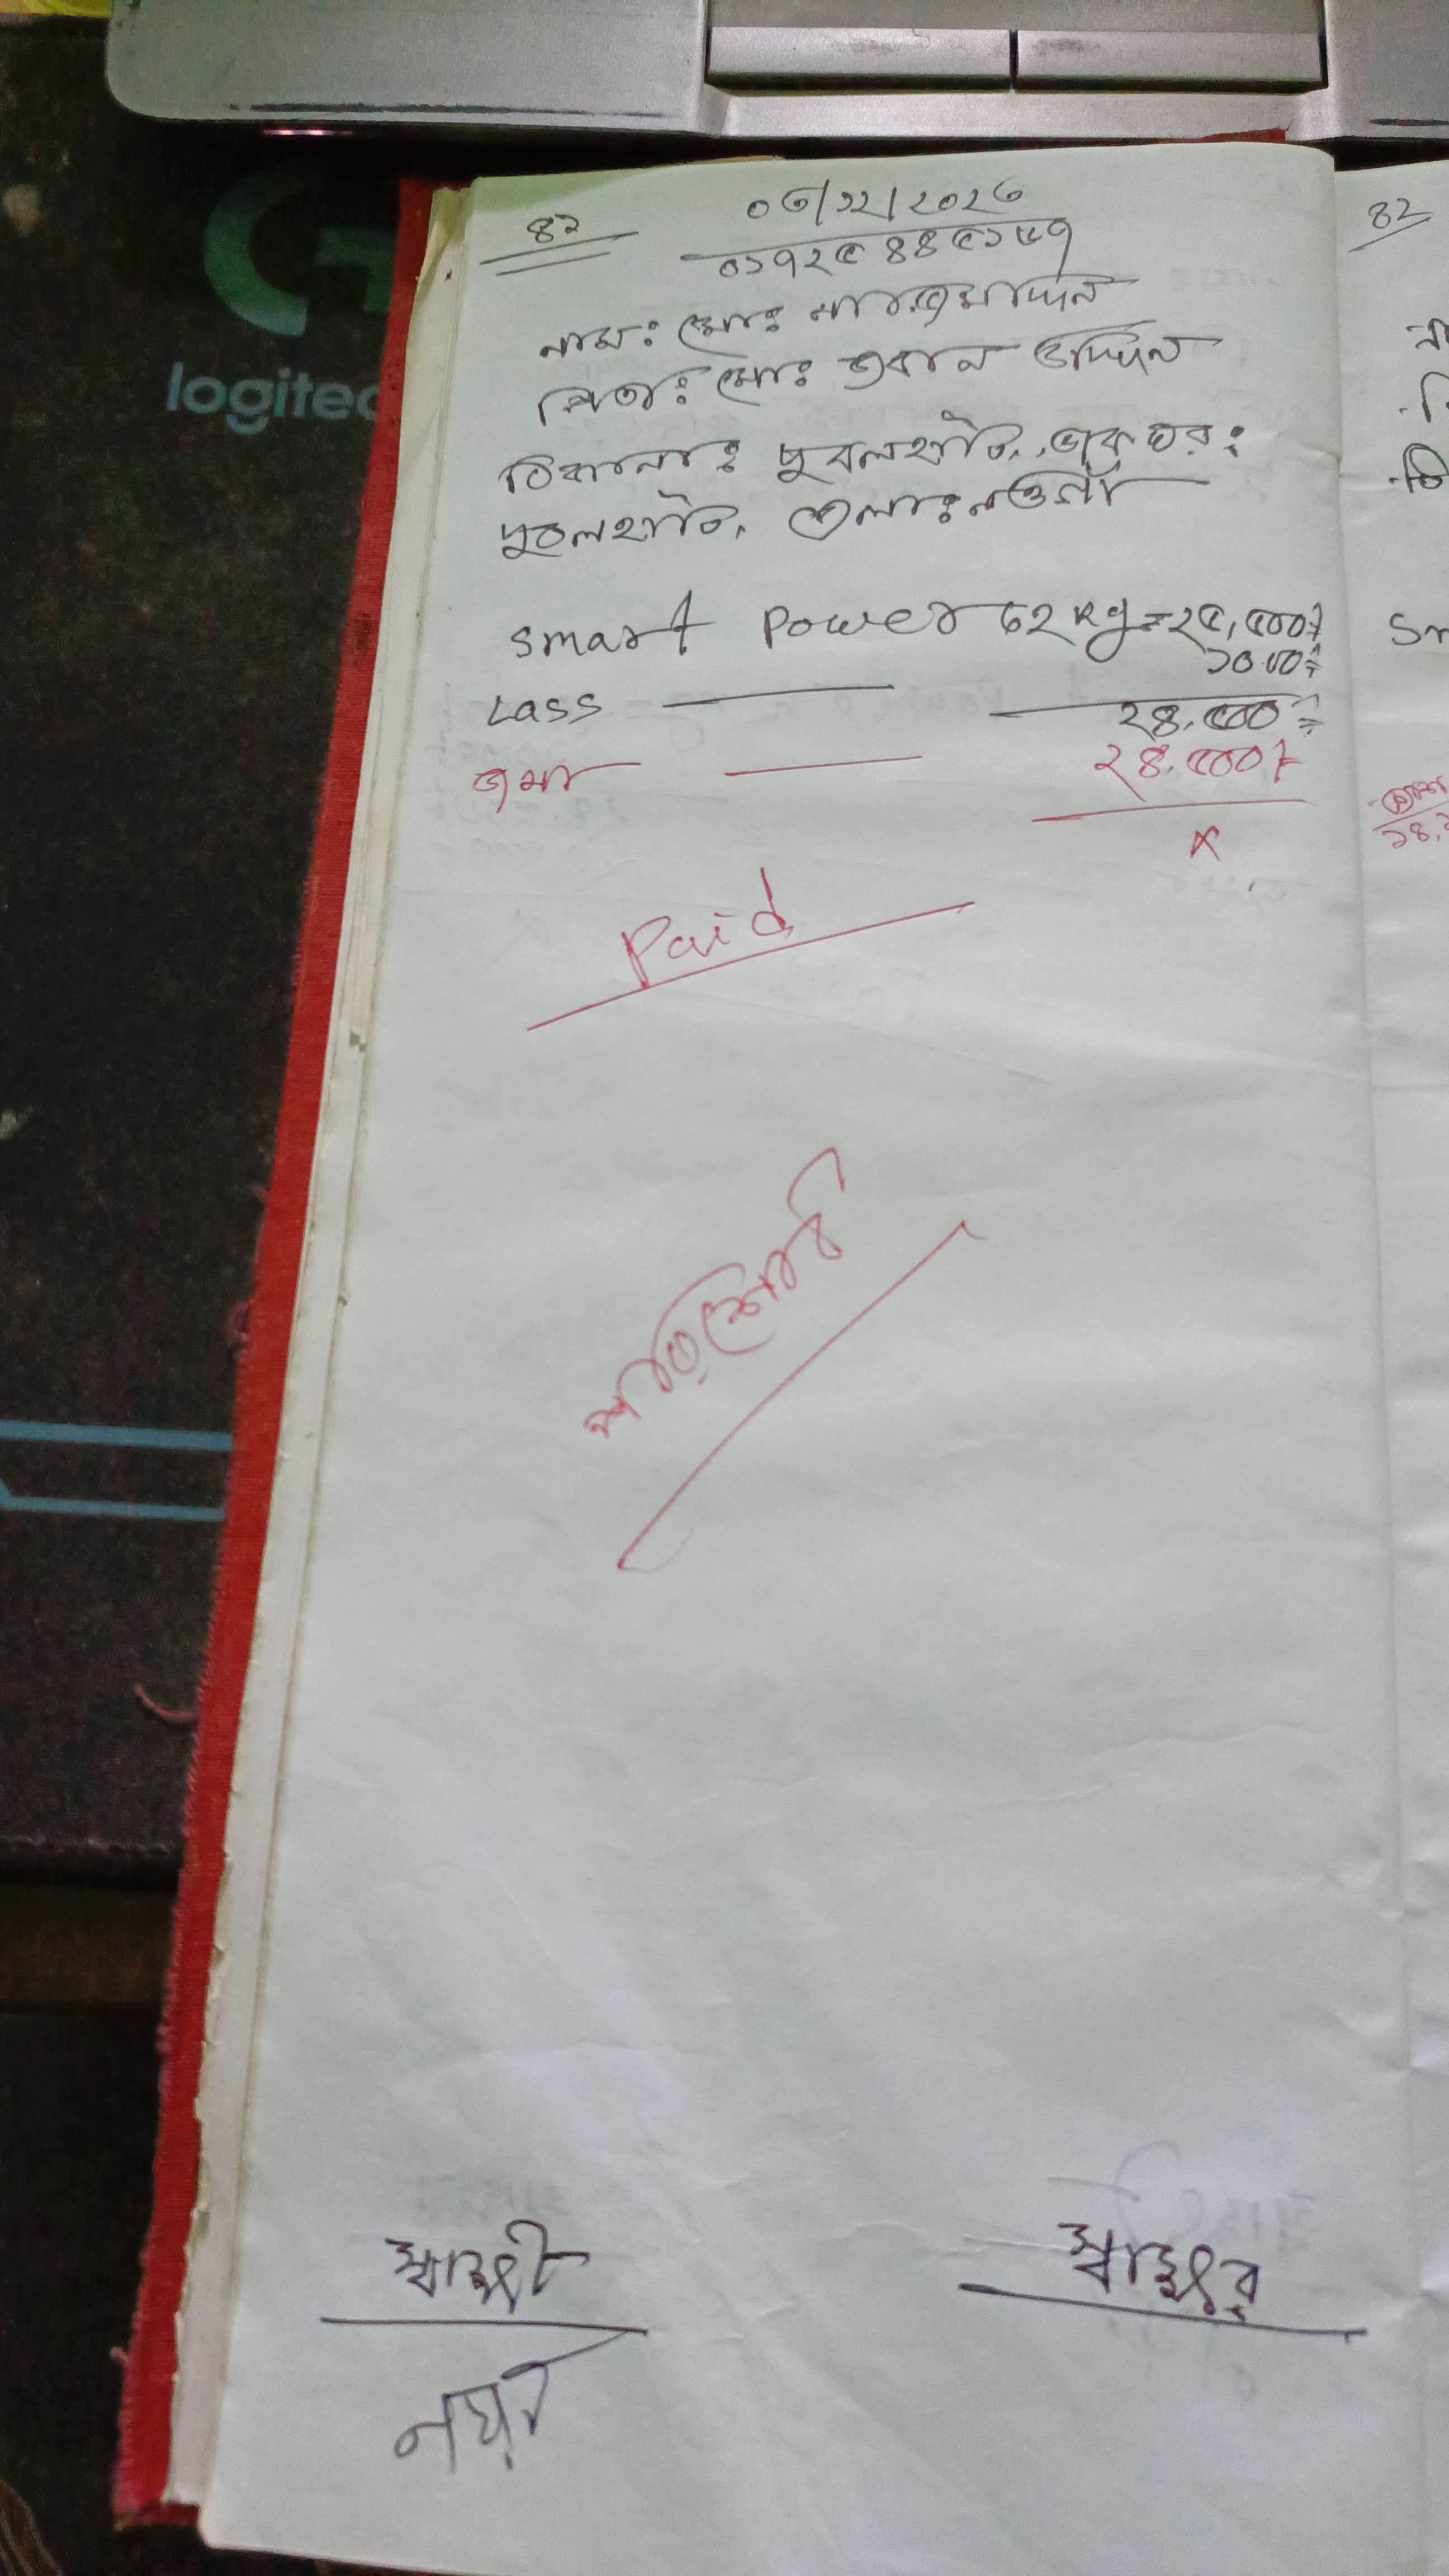 logitec
৪১
০৩/১২/২০২৩
০১৭২৫৪৪৫১৬৭
নাম: মোঃ নাজেমাদ্দিন
পিতা: মোঃ জবান উদ্দিন
ঠিকানাঃ দুবলহাটি, ডাকঘর:
দুবলহাটি, জেলাঃ নওগাঁ
Smart Power ৬২ kg = ২৫,৫০০/=
১০০০/=
Lass
২৪,৫০০/=
জমা ২৪,৫০০/=
x
Paid
পরিশোধ
স্বাক্ষী
স্বাক্ষর
82
Sm